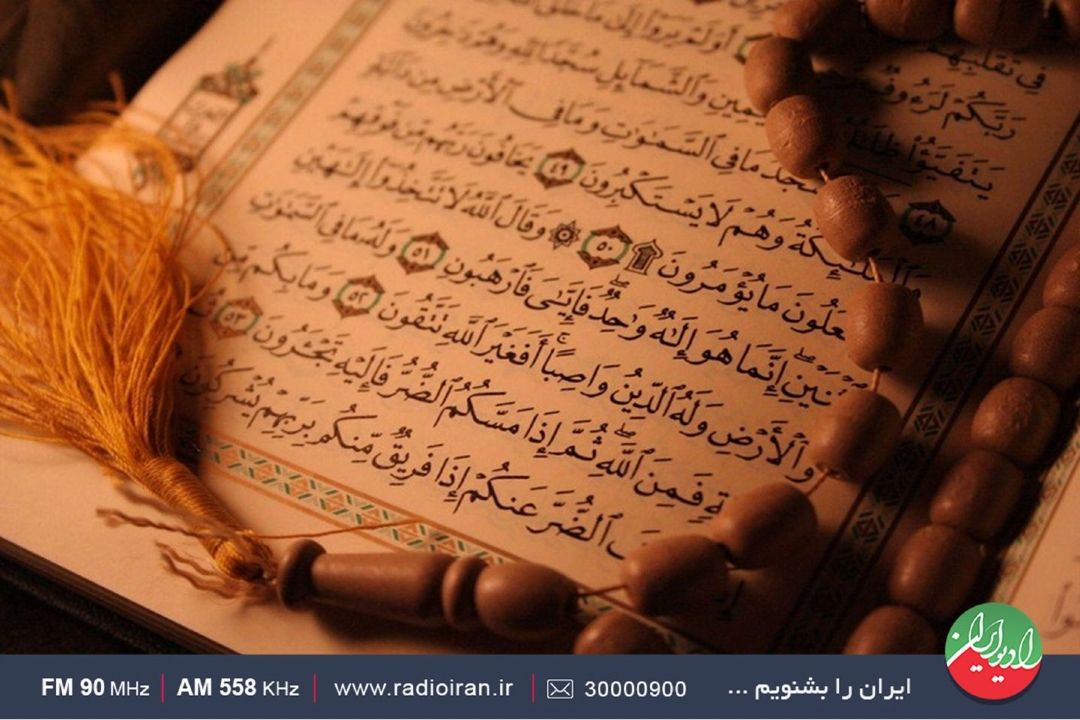 رَبَّكُمْ لَرَءُوفٌ أَوَلَمْ يَرَوْا۟ إِلَىٰ مَا خَلَقَ
يَتَفَيَّؤُا۟ ظِلَٰلُهُۥ وَٱلشَّمَآئِلِ سُجَّدًا لِّلَّهِ وَهُمْ دَٰخِرُونَ
٤٨ مَا فِى ٱلسَّمَٰوَٰتِ وَمَا فِى ٱلْأَرْضِ مِن دَآبَّةٍ
وَٱلْمَلَٰٓئِكَةُ وَهُمْ لَا يَسْتَكْبِرُونَ ٤٩ يَخَافُونَ رَبَّهُم مِّن فَوْقِهِمْ
وَيَفْعَلُونَ مَا يُؤْمَرُونَ ۩ ٥٠ ۞ وَقَالَ ٱللَّهُ لَا تَتَّخِذُوٓا۟ إِلَٰهَيْنِ
ٱثْنَيْنِ ۖ إِنَّمَا هُوَ إِلَٰهٌ وَٰحِدٌ ۖ فَإِيَّٰىَ فَٱرْهَبُونِ ٥١ وَلَهُۥ مَا فِى ٱلسَّمَٰوَٰتِ
وَٱلْأَرْضِ وَلَهُ ٱلدِّينُ وَاصِبًا ۚ أَفَغَيْرَ ٱللَّهِ تَتَّقُونَ ٥٢ وَمَا بِكُم مِّن
نِّعْمَةٍ فَمِنَ ٱللَّهِ ۖ ثُمَّ إِذَا مَسَّكُمُ ٱلضُّرُّ فَإِلَيْهِ تَجْـَٔرُونَ ٥٣ ثُمَّ
كَشَفَ ٱلضُّرَّ عَنكُمْ إِذَا فَرِيقٌ مِّنكُم بِرَبِّهِمْ يُشْرِكُونَ
رادیو ایران
ایران را بشنویم ... 30000900 www.radioiran.ir AM 558 KHz FM 90 MHz